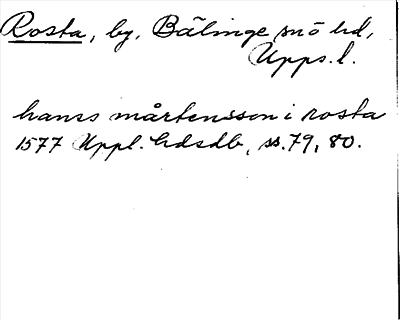 Rosta, by, Bälinge sn o hd,
Upps.l.
hanss mårtensson i rosta
1577 Uppl. hdsdb, ss. 79, 80.